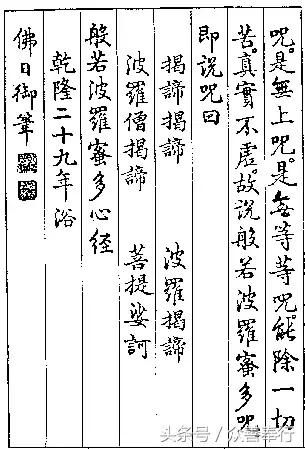 咒是無上咒是無等等咒能除一切
苦真實不虛故説般若波羅蜜多咒
即説咒曰
揭諦揭諦 波羅揭諦
波羅僧揭諦 菩提娑訶
般若波羅蜜多心経
乾隆二十九年浴
佛日御筆
头条号 / 众善奉行